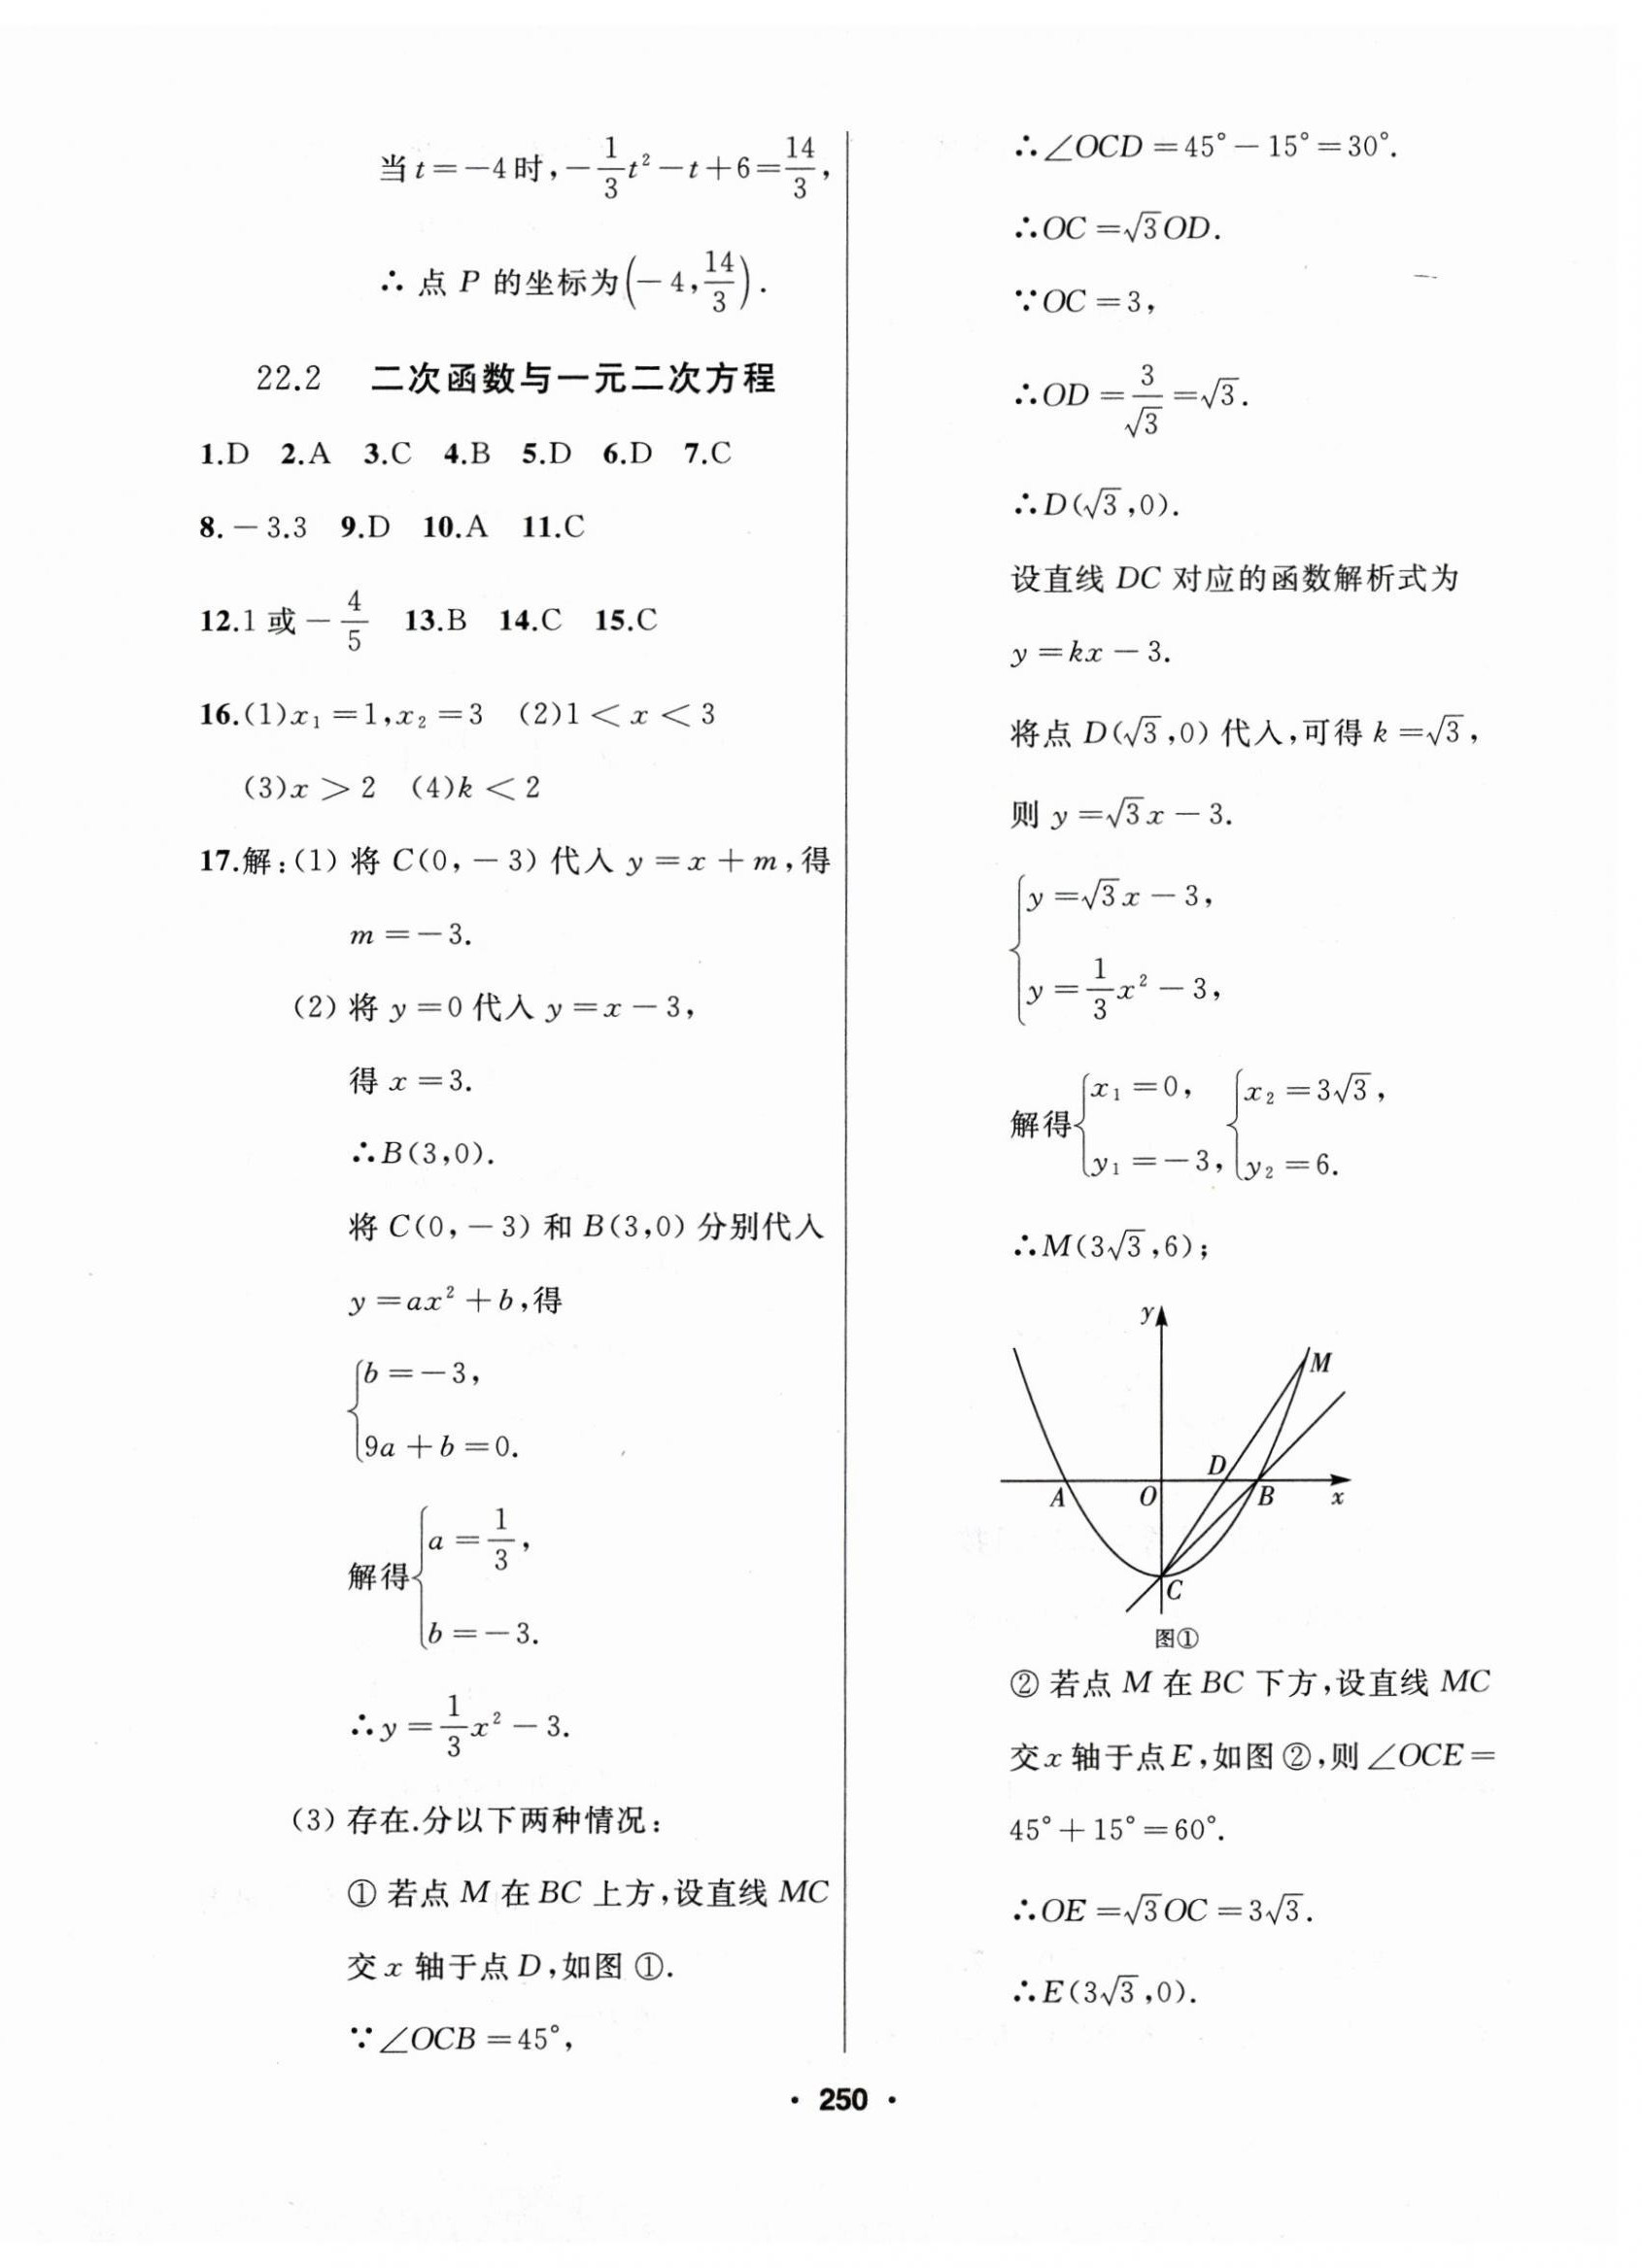 当t=−4时,−\frac{1}{3}t²−t+6=\frac{14}{3},
∴点 P 的坐标为(−4,\frac{14}{3}).
22.2 二次函数与一元二次方程
1.D 2.A 3.C 4.B 5.D 6.D 7.C
8.−3.3 9.D 10.A 11.C
12.1或−\frac{4}{5} 13.B 14.C 15.C
16.(1)x₁=1,x₂=3 (2)1<x<3
(3)x>2 (4)k<2
17.解:(1)将C(0,−3)代入y=x+m,得
m=−3.
(2)将y=0代入y=x−3,
得x=3.
∴B(3,0).
将C(0,−3)和B(3,0)分别代入
y=ax²+b,得
{b=−3,
9a+b=0.
解得{a=\frac{1}{3},
b=−3.
∴y=\frac{1}{3}x²−3.
(3)存在.分以下两种情况:
①若点M在BC上方,设直线MC
交x轴于点D,如图①.
∵∠OCB=45°,
∴∠OCD=45°−15°=30°.
∴OC=√3OD.
∵OC=3,
∴OD=\frac{3}{√3}=√3.
∴D(√3,0).
设直线DC对应的函数解析式为
y=kx−3.
将点D(√3,0)代入,可得k=√3,
则y=√3x−3.
{y=√3x−3,
y=\frac{1}{3}x²−3,
解得{x₁=0, {x₂=3√3,
y₁=−3, y₂=6.
∴M(3√3,6);
y
M
D
A O B x
C
图①
②若点M在BC下方,设直线MC
交x轴于点E,如图②,则∠OCE=
45°+15°=60°.
∴OE=√3OC=3√3.
∴E(3√3,0).
· 250 ·